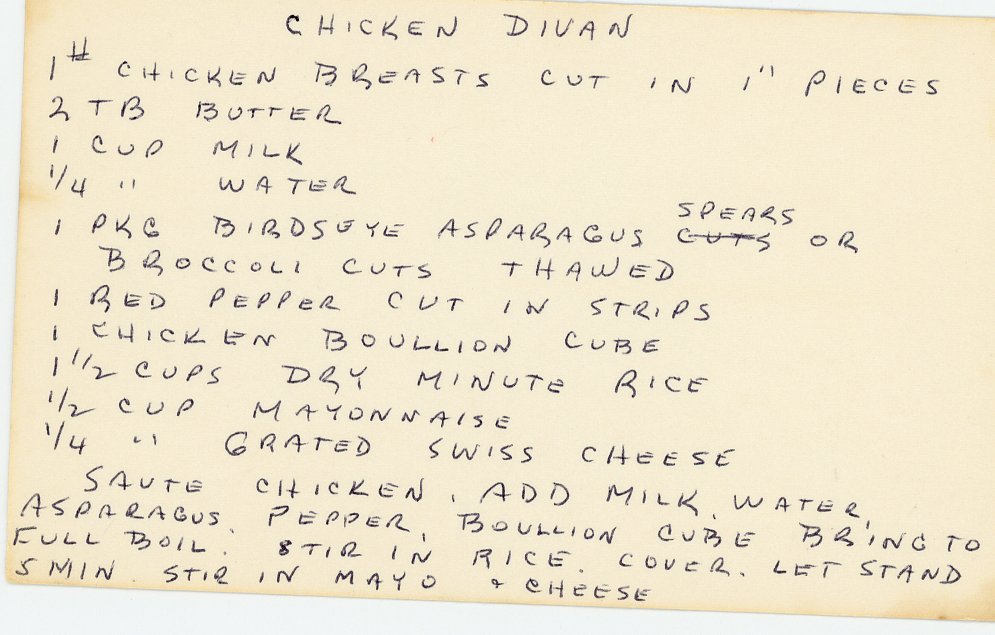 CHICKEN DIVAN
1# CHICKEN BREASTS CUT IN 1" PIECES
2 TB BUTTER
1 CUP MILK
1/4 " WATER
SPEARS
1 PKG BIRDSEYE ASPARAGUS CUTS OR
BROCCOLI CUTS THAWED
1 RED PEPPER CUT IN STRIPS
1 CHICKEN BOULLION CUBE
1 1/2 CUPS DRY MINUTE RICE
1/2 CUP MAYONNAISE
1/4 " GRATED SWISS CHEESE
SAUTE CHICKEN. ADD MILK, WATER,
ASPARAGUS, PEPPER, BOULLION CUBE BRING TO
FULL BOIL. STIR IN RICE. COVER. LET STAND
5 MIN. STIR IN MAYO & CHEESE